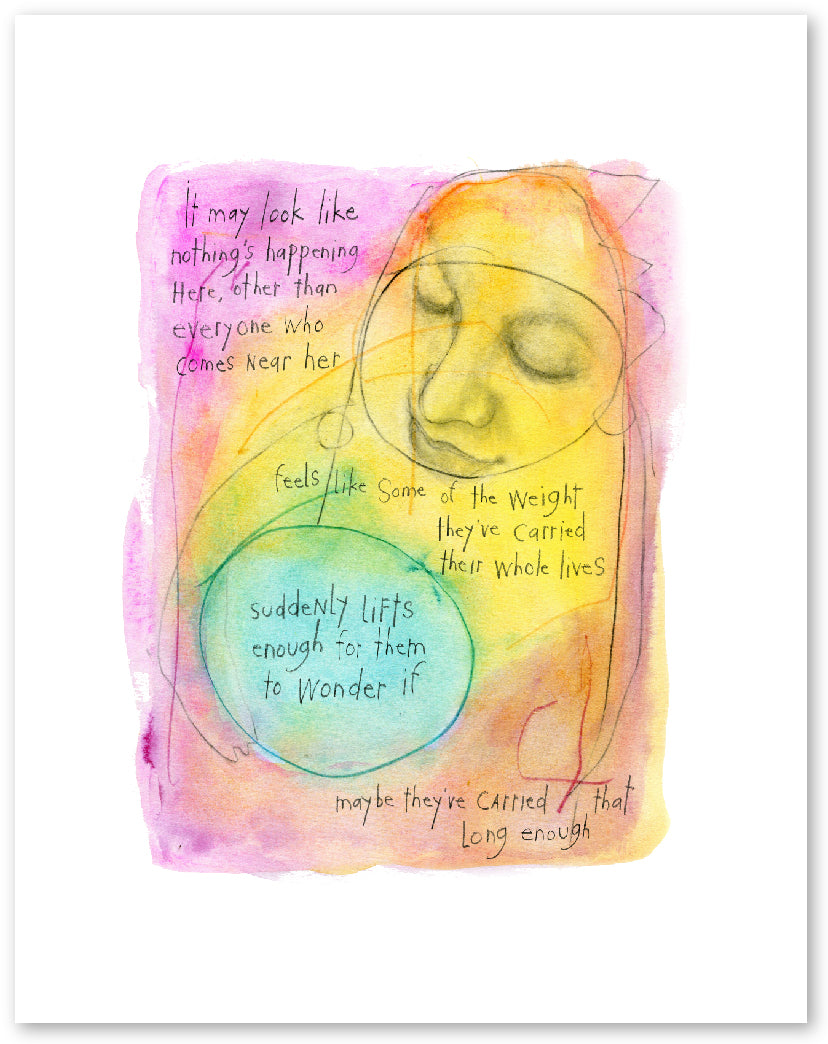 It may look like
nothing's happening
Here, other than
everyone who
comes Near her
feels like some of the weight
they've carried
their whole lives
suddenly lifts
enough for them
to wonder if
maybe they've carried that
long enough